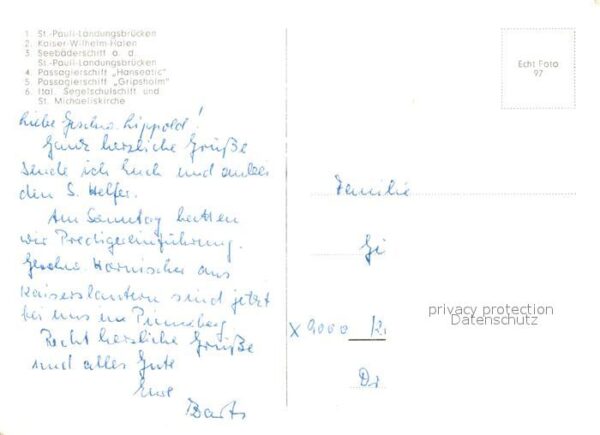 1. St.-Pauli-Landungsbrücken
2. Kaiser-Wilhelm-Hafen
3. Seebäderschiff a. d.
St.-Pauli-Landungsbrücken
4. Passagierschiff „Hanseatic"
5. Passagierschiff „Gripsholm"
6. Ital. Segelschulschiff und
St. Michaeliskirche
Echt Foto
97
Liebe Geschw. Lippold!
Ganz herzliche Grüße
sende ich Euch und anbei
den S. Helfer.
Am Sonntag hatten
wir Predigereinführung.
Geschw. Harnischer aus
Kaiserslautern sind jetzt
bei uns in Pinneberg
Recht herzliche Grüße
und alles Gute
Eure
Familie
Gi
X 9000 K.
Dr
privacy protection
Datenschutz